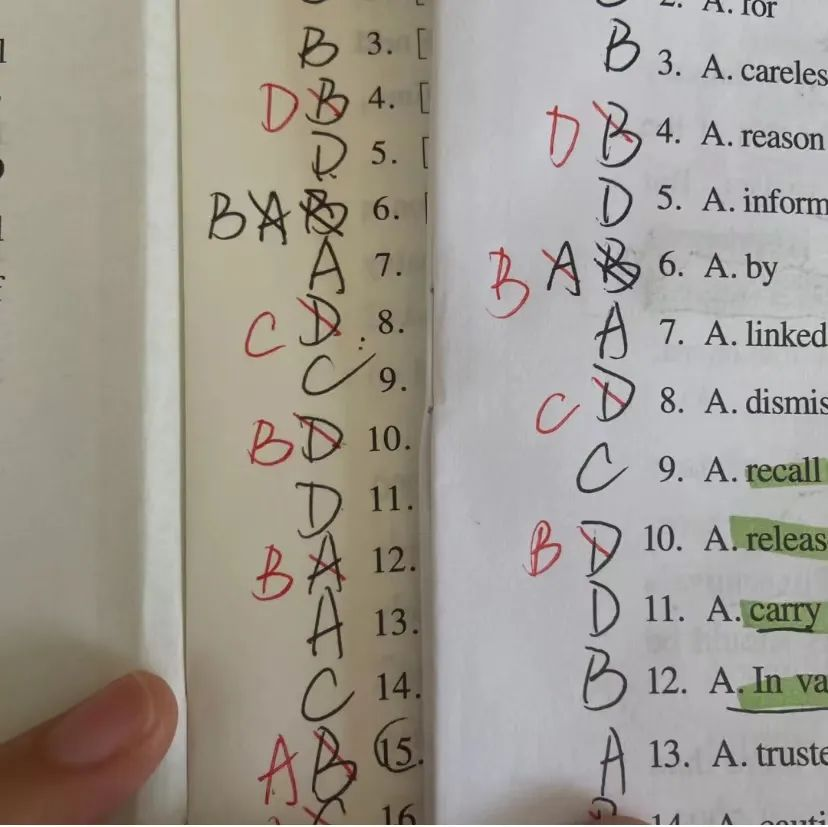 B 3. [
D B 4. [
D 5. [
B A B 6.
A 7.
C D 8.
C 9.
B D 10.
D 11.
B A 12.
A 13.
C 14.
A B 15.
16
2. A. for
B 3. A. careles
D B 4. A. reason
D 5. A. inform
B A B 6. A. by
A 7. A. linked
C D 8. A. dismis
C 9. A. recall
B D 10. A. releas
D 11. A. carry
B 12. A. In va
A 13. A. truste
14. A. cauti